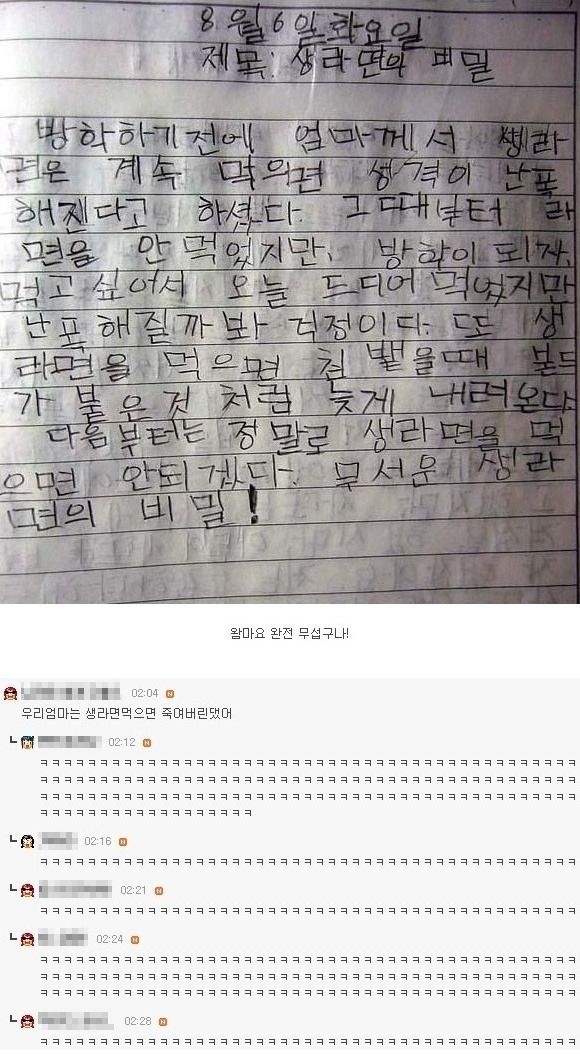 8월 6일 화요일
제목: 생라면의 비밀
방학하기전에 엄마께서 생라
면은 계속 먹의면 성격이 난폭
해진다고 하셨다. 그때부터 라
면을 안 먹었지만, 방학이 되자,
먹고 싶어서 오늘 드디어 먹었지만
난폭해질까봐 걱정이다. 또 생
라면을 먹으면 침 뱉을때 본드
가 붙은것 처럼 늦게 내려온다.
다음부터는 정말로 생라면을 먹
으면 안되겠다. 무서운 생라
면의 비밀!
왐마요 완전 무섭구나!
02:04 N
우리엄마는 생라면먹으면 죽여버린댔어
02:12 N
ㅋㅋㅋㅋㅋㅋㅋㅋㅋㅋㅋㅋㅋㅋㅋㅋㅋㅋㅋㅋㅋㅋㅋㅋㅋㅋㅋㅋㅋㅋㅋㅋㅋㅋㅋㅋ
ㅋㅋㅋㅋㅋㅋㅋㅋㅋㅋㅋㅋㅋㅋㅋㅋㅋㅋㅋㅋㅋㅋㅋㅋㅋㅋㅋㅋㅋㅋㅋㅋㅋㅋㅋㅋ
ㅋㅋㅋㅋㅋㅋㅋㅋㅋㅋㅋㅋㅋㅋㅋㅋㅋㅋㅋㅋㅋㅋㅋㅋㅋㅋㅋㅋㅋㅋㅋㅋㅋㅋㅋㅋ
ㅋㅋㅋㅋㅋㅋㅋㅋㅋㅋㅋㅋㅋㅋㅋ
02:16 N
ㅋㅋㅋㅋㅋㅋㅋㅋㅋㅋㅋㅋㅋㅋㅋㅋㅋㅋㅋㅋㅋㅋㅋㅋㅋㅋㅋㅋㅋㅋㅋㅋㅋㅋㅋㅋ
02:21 N
ㅋㅋㅋㅋㅋㅋㅋㅋㅋㅋㅋㅋㅋㅋㅋㅋㅋㅋㅋㅋㅋㅋㅋㅋㅋㅋㅋㅋㅋㅋㅋㅋㅋㅋㅋㅋ
02:24 N
ㅋㅋㅋㅋㅋㅋㅋㅋㅋㅋㅋㅋㅋㅋㅋㅋㅋㅋㅋㅋㅋㅋㅋㅋㅋㅋㅋㅋㅋㅋㅋㅋㅋㅋㅋㅋ
ㅋㅋㅋㅋㅋㅋㅋㅋㅋㅋㅋㅋㅋㅋㅋㅋㅋㅋㅋㅋㅋㅋㅋㅋㅋㅋㅋㅋㅋㅋㅋㅋㅋㅋㅋㅋ
ㅋㅋㅋㅋㅋㅋㅋㅋㅋㅋㅋㅋㅋㅋㅋㅋㅋㅋㅋㅋㅋㅋㅋㅋㅋㅋㅋㅋㅋㅋㅋㅋㅋㅋㅋㅋ
02:28 N
ㅋㅋㅋㅋㅋㅋㅋㅋㅋㅋㅋㅋㅋㅋㅋㅋㅋㅋㅋㅋㅋㅋㅋㅋㅋㅋㅋㅋㅋㅋㅋㅋㅋㅋㅋㅋ